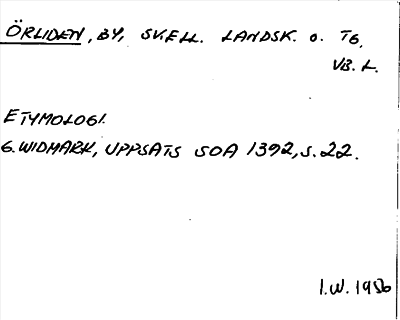 ÖRLIDEN, BY, SKELL. LANDSK. O. TG,
VB. L.
ETYMOLOGI.
G. WIDMARK, UPPSATS SOA 1392, S. 22.
I.W. 1986